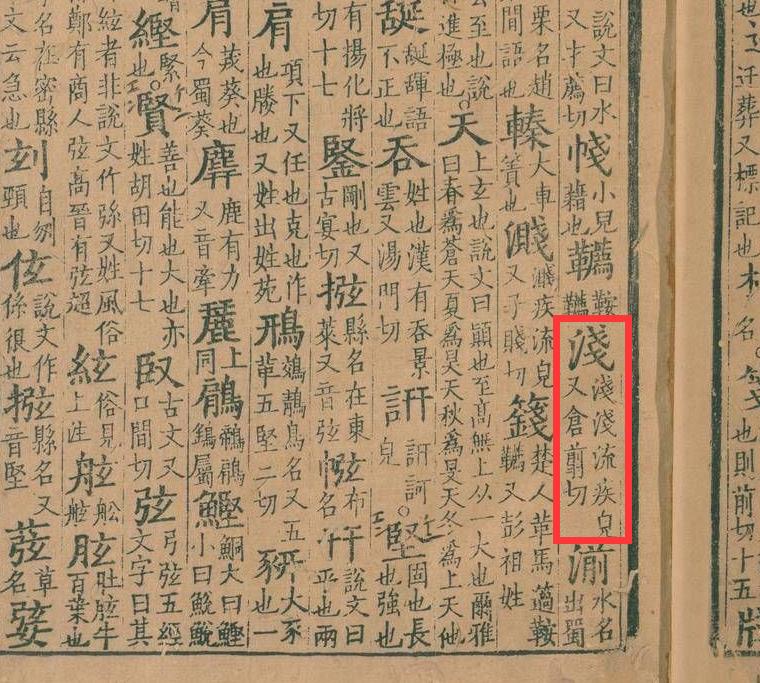 說文曰水
又才薦切
帴 小兒藉也
韉 鞍韉
淺 淺淺流疾皃又倉剪切
湔 水名出蜀
栗名趙
間語也
轃 大車簀也
濺 濺疾流皃又子賤切
籛 韉又彭祖姓
去至也說
進極也
天 上玄也說文曰顚也至高無上从一大也爾雅
曰春爲蒼天夏爲昊天秋爲旻天冬爲上天他
誕 誕譁語不正也
吞 姓也漢有吞景雲又湯門切
訮 訮訶皃
堅 固也長也強也
有揚化將
切十七
鋻 剛也又古宴切
縣名在東萊又音弦
布名
幵 說文曰平也兩
肩 項下又任也克也作也勝也又姓出姓苑
鳽 鵁鶄鳥名又五革五堅二切
豜 大豕也一
茙葵也今蜀葵
麉 鹿有力又音牽
上同
鵳 鶙鵳鷂屬
鰹 鮦大曰鰹小曰鮵
緊也
賢 善也能也大也亦姓胡田切十七
臤 古文又口閒切
弦 弓弦五經文字曰其
絃者非說文作弦又姓風俗
鄭有商人弦高晉有弦超
絃 俗見上注
舷 舷船
胘 肚胘牛百葉也
名在密縣
文云急也
自刎頸也
伭 說文作係很也
縣名又音堅
草名
迁葬又標記也
木名
也則前切十五
牋